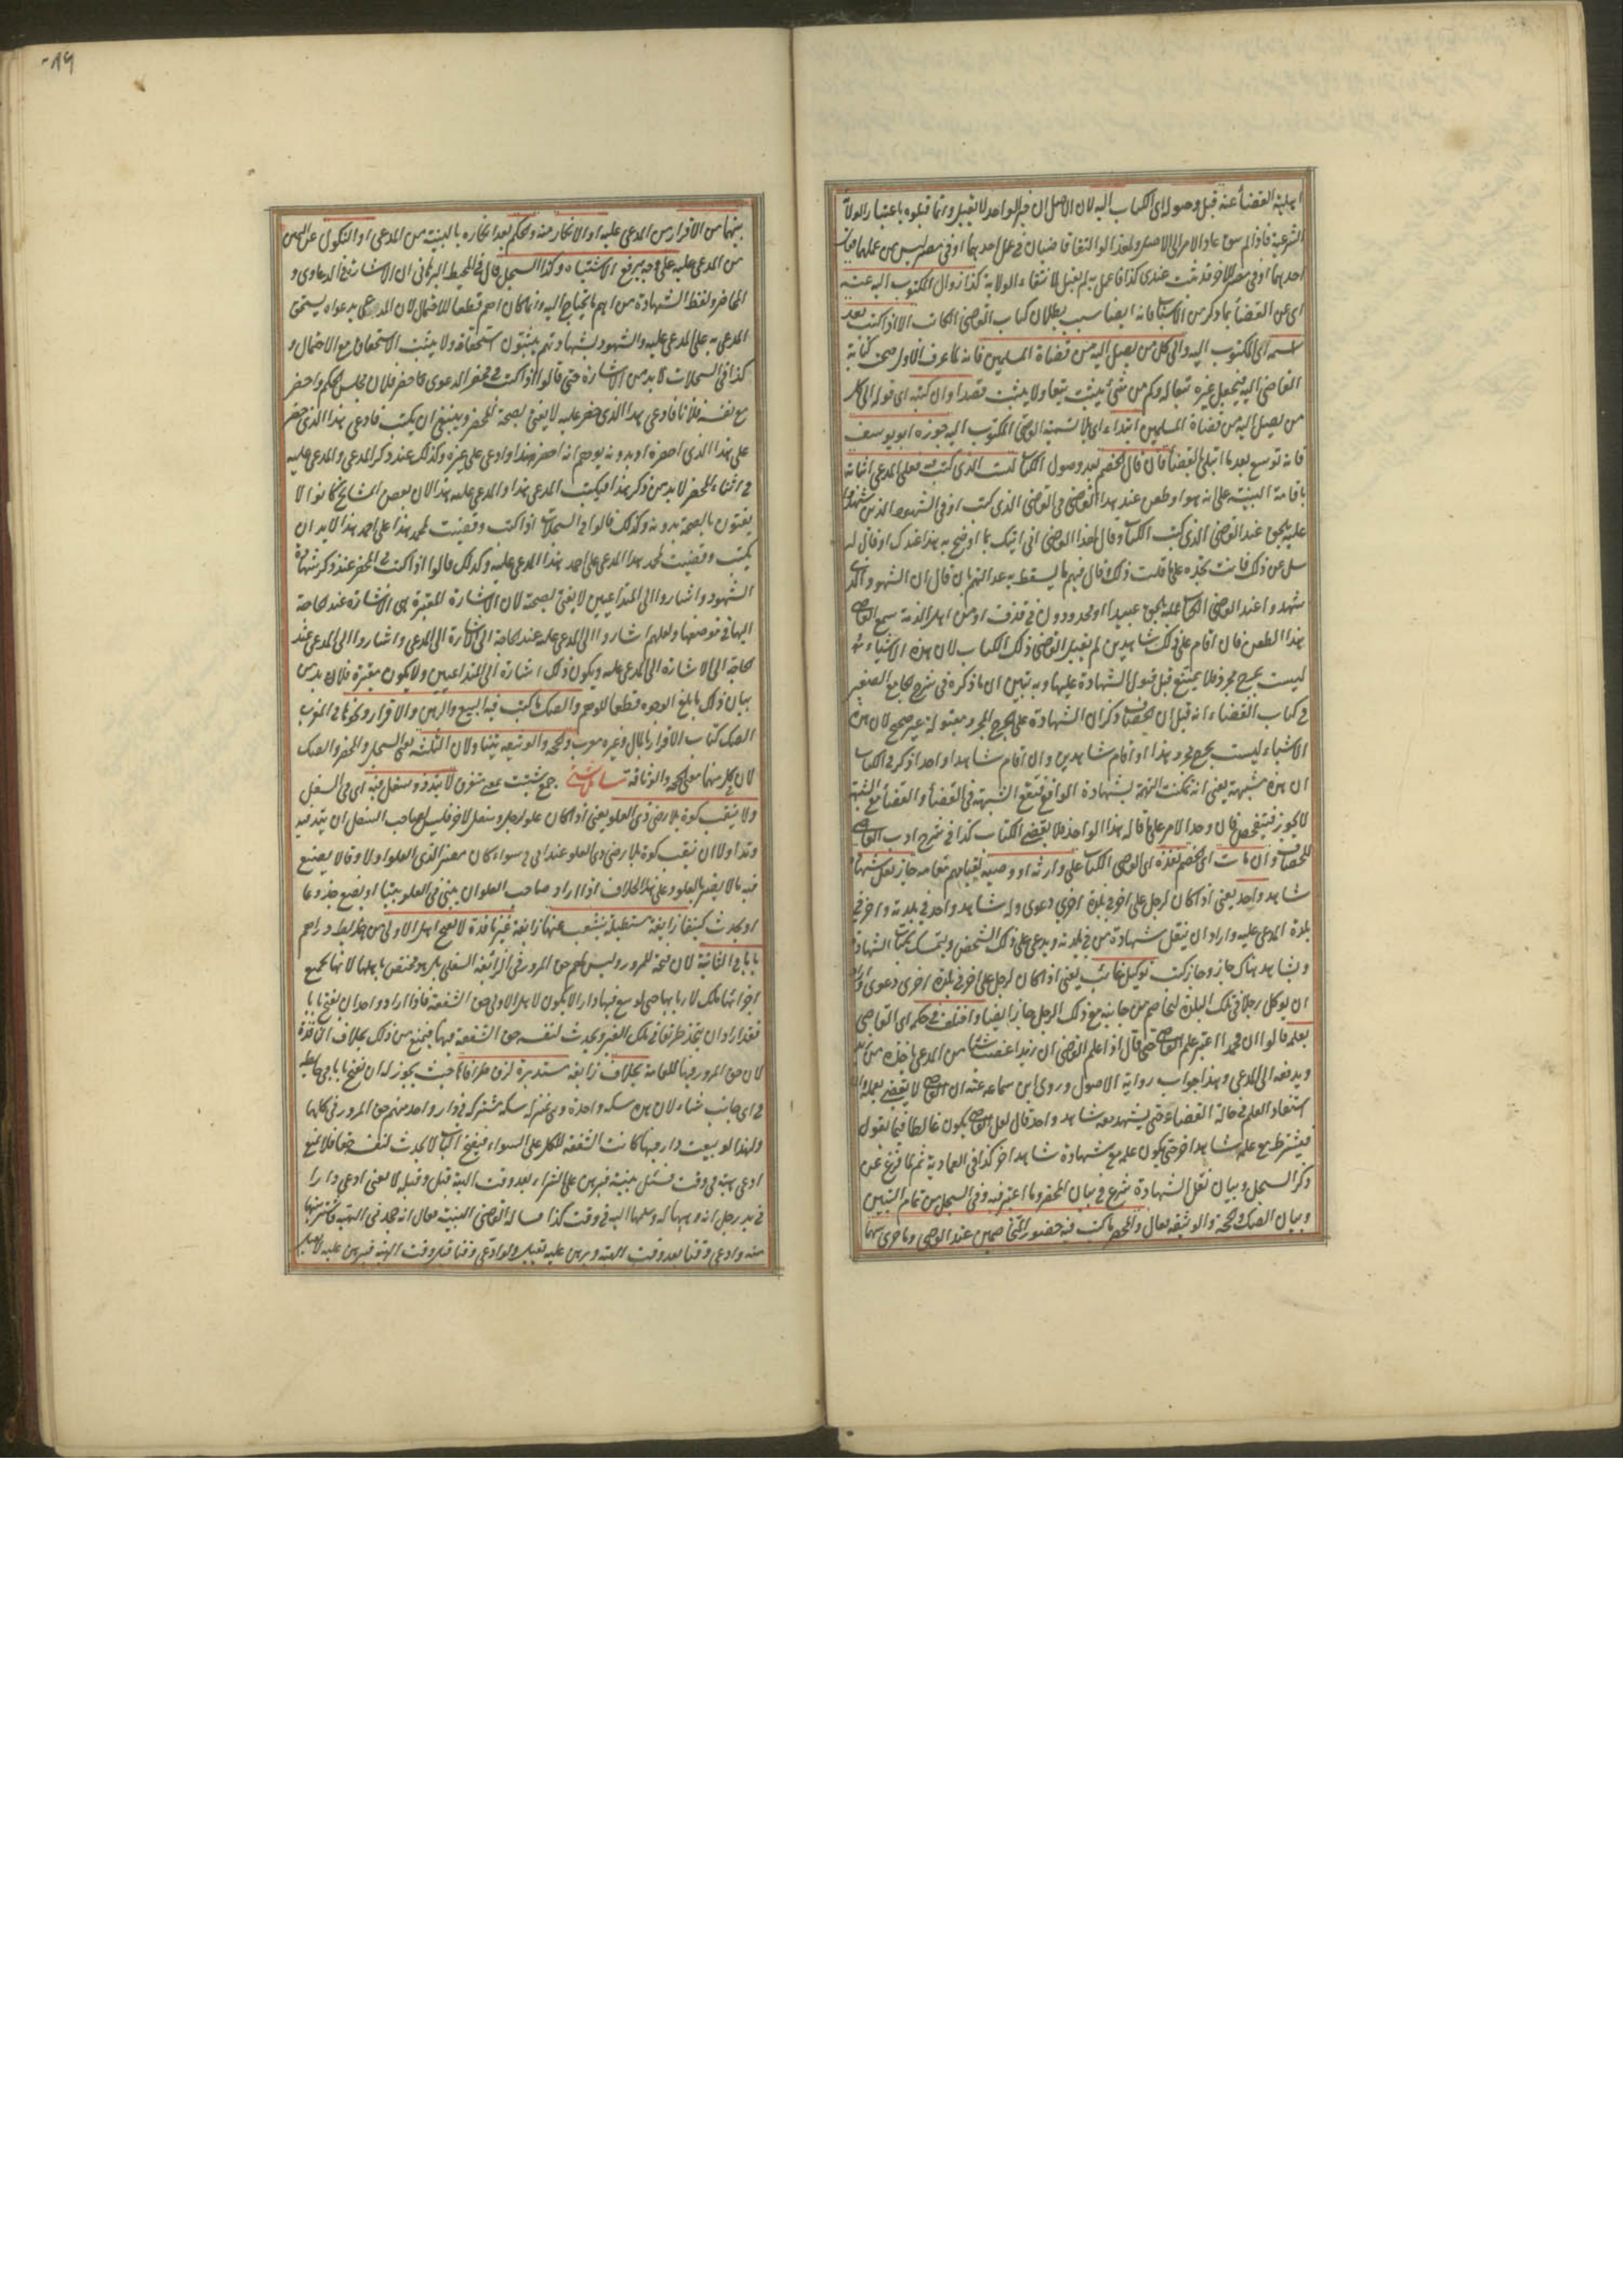 اهلية القضاء عنه قبل وصوله اى الكتاب اليه لان الاصل ان خبر الواحد لا يقبل وانما قبلوه باعتبار الولاية
الشرعية فاذا لم يبق عاد الامر الى الاصل ولهذا لو التقا قاضيان فى عمل احدهما او فى مصر ليس من عملهما فقال
احدهما او فى مصر الآخر قد ثبت عندى كذا فاعمل به لم يقبل لانتفاء الولاية كذا زوال المكتوب اليه عنه
اى عن القضاء بما ذكر من الاسباب فانه ايضا سبب بطلان كتاب القاضى الكاتب الا اذا كتب بعد
اسمه اى المكتوب اليه والى كل من يصل اليه من قضاة المسلمين فانه لما عرف الاول صحت كتابة
القاضى اليه فيجعل غيره تبعا له وكم من شئ يثبت تبعا ولا يثبت قصدا وان كتبه اى قوله الى كل
من يصل اليه من قضاة المسلمين ابتداء اى بلا تسمية القاضى المكتوب اليه جوزه ابو يوسف
فانه توسع بعد ما ابتلى بالقضاء فان قال الخصم بعد وصول الكتاب لست الذى كتب فيه فعلى المدعى اثباته
باقامة البينة على انه هو او طعن عند هذا القاضى فى القاضى الذى كتب او فى الشهود الذين شهدوا
عليه بحق عند القاضى الذى كتب الكتاب وقال لهذا القاضى انى اتيك بما اوضح به هذا عندك او قال له
سل عن ذلك فانت تجده على ما قلت ذلك وقال فيهم ما يسقط به عدالتهم بان قال ان الشهود الذين
شهدوا عند القاضى الكاتب عليه بحق عبيد او محدودون فى قذف او من اهل الذمة سمع القاضى
هذا الطعن فان اقام على ذلك شاهدين لم يقبل القاضى ذلك الكتاب لان هذه الاشياء
ليست بجرح مجرد فلا يمتنع قبول الشهادة عليها وبه تبين ان ما ذكره فى شرح الجامع الصغير
فى كتاب القضاء انه قيل ان الخصاف ذكر ان الشهادة على الجرح المجرد مقبولة غير صحيح لان هذه
الاشياء ليست بجرح مجرد هذا او اقام شاهدين وان اقام شاهدا واحدا ذكر فى الكتاب
ان هذه شبهة يعنى انه تمكنت التهمة بشهادة الواحد فتقع الشبهة فى القضاء والقضاء مع الشبهة
لا يجوز فيتفحص فان وجد الامر على ما قاله هذا الواحد فلا يقضى الكتاب كذا فى شرح ادب القاضى
للخصاف وان مات اى الخصم نفذه اى القاضى الكتاب على وارثه او وصيه لقيامهم مقامه جاز نقل شهادة
شاهد واحد يعنى اذا كان لرجل على اخر فى بلدة اخرى دعوى وله شاهد واحد فى بلدته واخر فى
بلدة المدعى عليه واراد ان ينقل شهادة من فى بلدته ويدعى على ذلك الشخص ويتمسك بكتاب الشهادة
وبشاهد هناك جاز وجاز كتب توكيل غائب يعنى اذا كان لرجل على اخر فى بلدة اخرى دعوى واراد
ان يوكل رجلا فى تلك البلدة ليخاصم من جانبه مع ذلك الرجل جاز ايضا واختلف فى حكم اى القاضى
بعلمه قالوا ان محمدا اعتبر علم القاضى حتى قال اذا علم القاضى ان زيدا غصب شيئا من المدعى ياخذه من زيد
ويدفعه الى المدعى وهذا جواب رواية الاصول وروى ابن سماعة عنه ان القاضى لا يقضى بعلمه وان
استفاد العلم فى حالة القضاء حتى يشهد معه شاهد واحد قال لعل القاضى يكون غالطا فيما يقول
فيشترط مع علمه شاهد اخر حتى يكون علمه مع شهادة شاهد اخر كذا فى العمادية ثم لما فرغ عن
ذكر السجل وبيان نقل الشهادة شرع فى بيان المحضر وما اعتبر فيه وفى السجل من تمام التبيين
وبيان الصك والحجة والوثيقة فقال والمحضر ما كتب فيه حضور المتخاصمين عند القاضى وما جرى بينهما
٨٩٠
بينهما من الاقرار من المدعى عليه او الانكار منه والحكم بعد انكاره بالبينة من المدعى او النكول عن اليمين
من المدعى عليه على وجه يرفع الاشتباه وكذا السجل قال فى المحيط البرهانى ان الاشارة فى الدعاوى و
المحاضر ولفظ الشهادة من اهم ما يحتاج اليه وانما كان اهم قطعا للاحتمال لان المدعى بدعواه يستحق
المدعى به على المدعى عليه والشهود بشهادتهم يثبتون استحقاقه ولا يثبت الاستحقاق مع الاحتمال و
كذا فى السجلات لا بد من الاشارة حتى قالوا اذا كتب فى محضر الدعوى حضر فلان مجلس الحكم واحضر
مع نفسه فلانا فادعى هذا الذى حضر عليه لا يفتى بصحة المحضر وينبغى ان يكتب فادعى هذا الذى حضر
على هذا الذى احضره اذ بدونه يوهم انه احضر هذا وادعى على غيره وكذلك عند ذكر المدعى والمدعى عليه
فى اثناء المحضر لا بد من ذكر هذا فيكتب المدعى هذا والمدعى عليه هذا لان بعض المشايخ كانوا لا
يفتون بالصحة بدونه وكذلك قالوا فى السجلات اذا كتب وقضيت لمحمد هذا على احمد هذا لا بد ان
يكتب وقضيت لمحمد هذا المدعى على احمد هذا المدعى عليه وكذلك قالوا اذا كتب فى المحضر عند ذكر شهادة
الشهود واشاروا الى المتداعيين لا يفتى بصحته لان الاشارة المعتبرة هى الاشارة عند الحاجة
اليها فى موضعها ولعلهم اشاروا الى المدعى عليه عند الحاجة الى الاشارة الى المدعى واشاروا الى المدعى عند
الحاجة الى الاشارة الى المدعى عليه ويكون ذلك اشارة الى المتداعيين ولا يكون معتبرة فلا بد من
بيان ذلك بابلغ الوجوه قطعا للوهم والصك ما كتب فيه البيع والرهن والاقرار ونحوها فى المغرب
الصك كتاب الاقرار بالمال وغيره معرب والحجة والوثيقة يتناولان الثلثة يعنى السجل والمحضر والصك
لان فى كل منها معنى الحجة والوثاقة مسائل شتى جمع شتيت بمعنى متفرق لا يتد ذو سفل فيه اى فى السفل
ولا ينقب كوة بلا رضى ذى العلو يعنى اذا كان علو لرجل وسفل لاخر فليس لصاحب السفل ان يتد فيه
وتدا ولا ان ينقب كوة بلا رضى ذى العلو عند ابى ح سواء كان مضر الذى العلو اولا وقالا يصنع
فيه ما لا يضر بالعلو وعلى هذا الخلاف اذا اراد صاحب العلو ان يبنى فى العلو بيتا او يضع جذوعا
او يحدث كنيفا زايغة مستطيلة ينشعب عنها زايغة غير نافذة لا يفتح اهل الاولى من حائط دارهم
بابا فى الثانية لان فتحه للمرور وليس لهم حق المرور فى الزائغة السفلى بل هو مختص باهلها لانها بجميع
اجزائها ملك لاربابها حتى لو بيع فيها دار لا يكون لاهل الاولى حق الشفعة فاذا اراد واحد ان يفتح بابا
فقد اراد ان يتخذ طريقا فى ملك الغير ويحدث لنفسه حق الشفعة فيها فيمنع من ذلك بخلاف النافذة
لان حق المرور فيها للعامة بخلاف زايغة مستديرة لزق طرفاها حيث يجوز له ان يفتح بابا فى حائط
فى اى جانب شاء لان هذه سكة واحدة وهى بمنزلة سكة مشتركة فى دار واحد منهم حق المرور فى كلها
ولهذا لو بيعت دار فيها كانت الشفعة للكل على السواء فبفتح الباب لا يحدث لنفسه حقا فلا يمنع
ادعى هبة فى وقت فسئل بينة فبرهن على الشراء بعد وقت الهبة قبل وقبله لا يعنى ادعى دارا
فى يد رجل انه وهبها له وسلمها اليه فى وقت كذا فساله القاضى البينة فقال انه جحدنى الهبة فاشتريتها
منه وادعى وقتا بعد وقت الهبة وبرهن عليه تقبل ولو ادعى وقتا قبل وقت الهبة فبرهن عليه لا تقبل